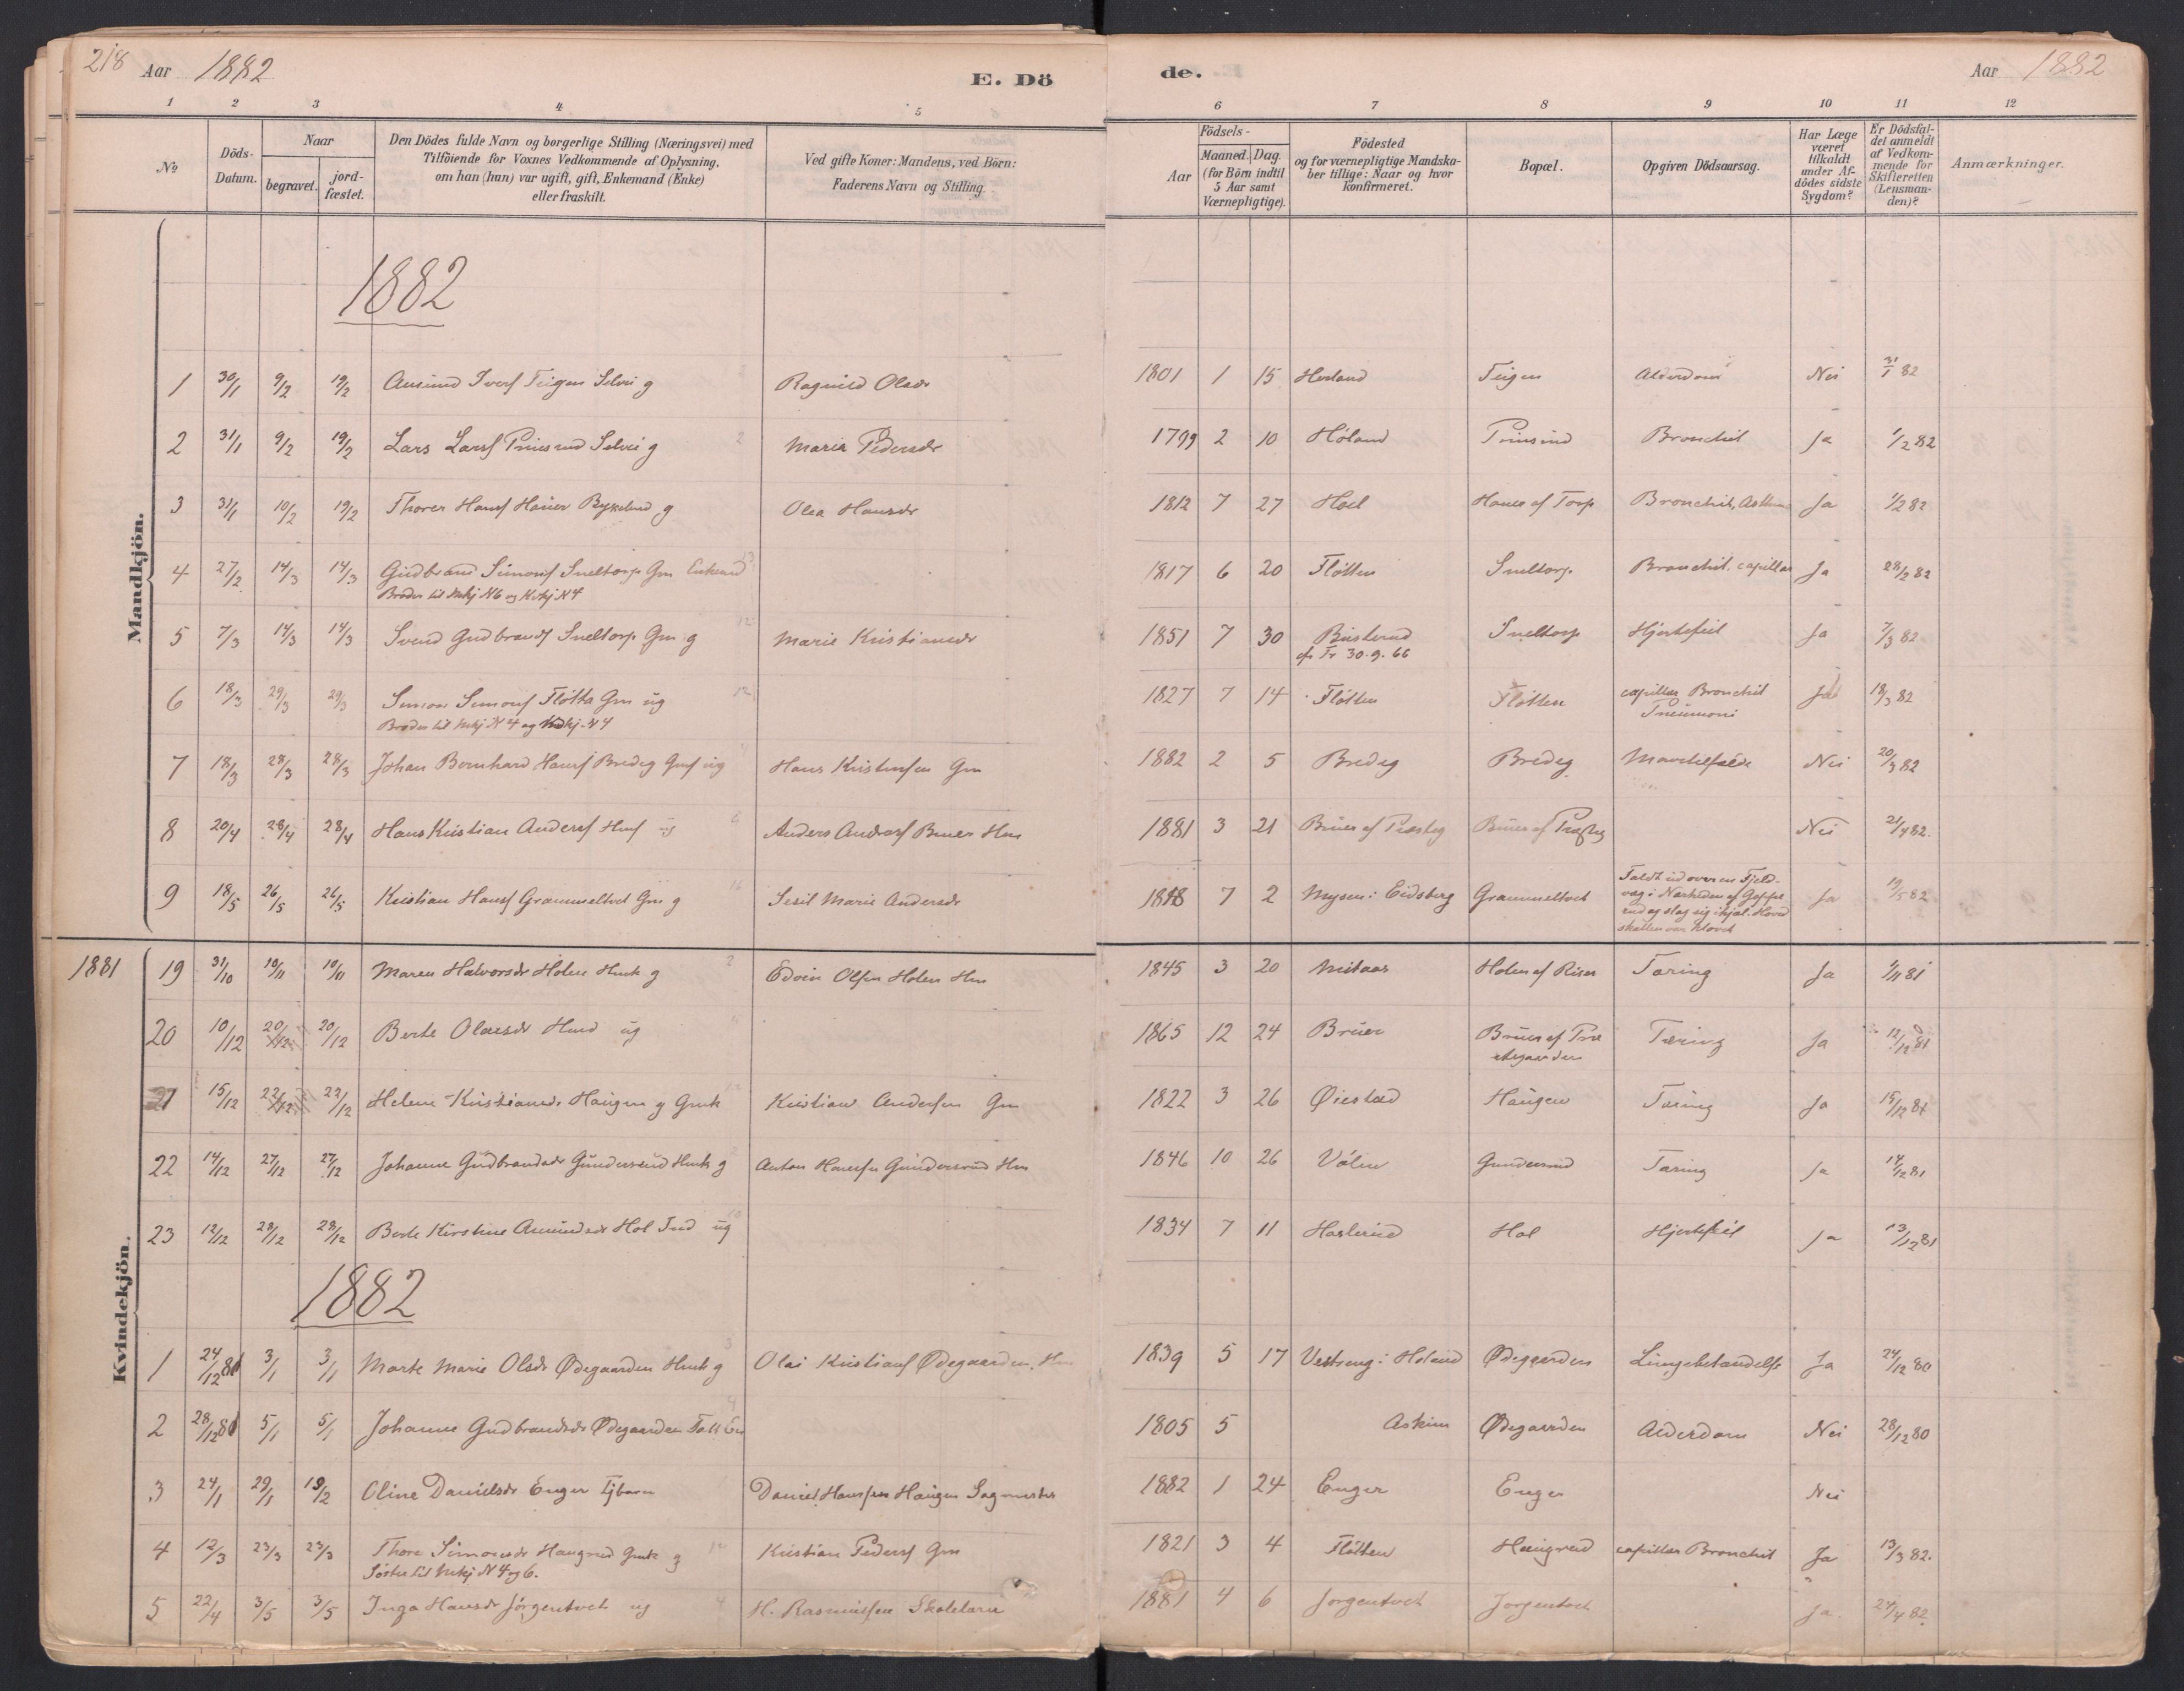 218 Aar 1882 E. Dö de. Aar 1882
1 2 3 4 5 6 7 8 9 10 11 12
No Döds-Datum. Naar begravet. jord-fæstet. Den Dödes fulde Navn og borgerlige Stilling (Næringsvei) med Tilföiende for Voxnes Vedkommende af Oplysning, om han (hun) var ugift, gift, Enkemand (Enke) eller fraskilt. Ved gifte Koner: Mandens, ved Börn: Faderens Navn og Stilling. Födsels- Aar Maaned. Dag. (for Börn indtil 5 Aar samt Værnepligtige). Födested og for værnepligtige Mandskaber tillige: Naar og hvor konfirmeret. Bopæl. Opgiven Dödsaarsag. Har Læge været tilkaldt under Afdödes sidste Sygdom? Er Dödsfaldet anmeldt af Vedkommende for Skifteretten (Lensmanden)? Anmærkninger.
Mandkjön.
1882
1 30/1 9/2 19/2 Amund Iversf Teigen Selvei g Ragnild Olsdr 1801 1 15 Herland Teigen Alderdom Nei 31/1 82
2 31/1 9/2 19/2 Lars Larsf Prinsrud Selvei g Maria Pedersdr 1799 2 10 Höland Prinsrud Bronchit Ja 1/2 82
3 31/1 10/2 19/2 Thorer Hansf g Olea Hansdr 1812 7 27 Hoel af Torp Bronchit, Asthma Ja 1/2 82
4 27/2 14/3 14/3 Gudbrand Simonsf Sneltorp Gm Enkemd 1817 6 20 Flötten Sneltorp Bronchit. capillar Ja 28/2 82
Broder til Mkj N 6 og Kvkj N 4
5 7/3 14/3 14/3 Svend Gudbrandsf Sneltorp Gm g Marie Kristiansdr 1851 7 30 Busterud Sneltorp Hjertefeil Ja 7/3 82
cf. Tr. 30.9.66
6 18/3 29/3 29/3 Simon Simonsf Flötta Gm ug 1827 7 14 Flötten Flötten capillar Bronchit Ja 18/3 82
Broder til Mkj N 4 og Kvkj N 4 Pneumoni
7 18/3 28/3 28/3 Johan Bernhard Hansf Bredeg Gmf ug Hans Kristensen Gm 1882 2 5 Bredeg Bredeg Nei 20/3 82
8 20/4 28/4 28/4 Hans Kristian Andersf Hmf ug Anders Andersf Bruer Hm 1881 3 21 Bruer af Præsteg Bruer af Præsteg Nei 21/4 82.
9 18/5 26/5 26/5 Kristian Hansf Grammeltvet Gm g Sesil Marie Andersdr 1848 7 2 Mysen i Eidsberg Grammeltvet Faldt ud over en Fjeldvæg i Nærheden af rud og slog sig ihjel. Hovedskallen var klovet Ja 19/5 82
Kvindekjön.
1881 19 31/10 10/11 10/11 Maren Halvorsdr Holen Hmk g Edvin Olsen Holen Hm 1845 3 20 Holen af Riser Tæring Ja 1/11 81
20 10/12 20/12 20/12 Berte Olavesdr Hmd ug 1865 12 24 Bruer Bruer af Præstegaarden Tæring Ja 12/12 81
21 15/12 22/12 22/12 Helene Kristiansdr Haugen g Gmk Kristian Andersen Gm 1822 3 26 Öiestad Haugen Tæring Ja 15/12 81
22 14/12 27/12 27/12 Johanne Gudbrandsdr Gundersrud Hmk g Anton Hansen Gundersrud Hm 1846 10 26 Gundersrud Tæring Ja 14/12 81
23 12/12 28/12 28/12 Berte Kirstine Amundsdr Hol Ind ug 1834 7 11 Haslerud Hol Hjertefeil Ja 13/12 81
1882
1 24/12 81 3/1 3/1 Marte Marie Olsdr Ødegaarden Hmk g Olai Kristiansf Ødegaarden. Hm 1839 5 17 Vestreng i Höland Ødegaarden Ja 24/12 80
2 28/12 81 5/1 5/1 Johanne Gudbrandsdr Ødegaarden 1805 5 Askim Ødegaarden Alderdom Nei 28/12 80
3 24/1 29/1 19/2 Oline Danielsdr Enger Daniel Hansen Haugen Sagmester 1882 1 24 Enger Enger Nei
4 12/3 23/3 23/3 Thore Simonsdr Haugrud Gmk g Kristian Pedersf Gm 1821 3 4 Flötten Haugrud capillar Bronchit Ja 13/3 82.
Söster til Mkj N 4 og 6.
5 22/4 3/5 3/5 Inga Hansdr Jörgentvet ug H. Rasmussen Skolelærer 1881 4 6 Jorgentvet Jorgentvet Ja 24/4 82.